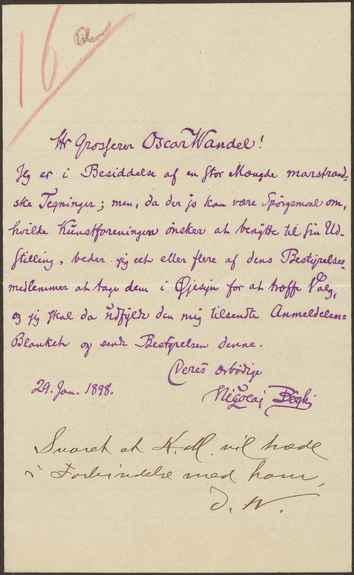 16
Hr Grosserer Oscar Wandel!
Jeg er i Besiddelse af en stor Mængde marstrand-
ske Tegninger; men, da der jo kan være Spørgsmaal om,
hvilke Kunstforeningen ønsker at benytte til sin Ud-
stilling, beder jeg eet eller flere af dens Bestyrelses-
medlemmer at tage dem i Øjesyn for at træffe Valg,
og jeg skal da udfylde den mig tilsendte Anmeldelses-
Blanket og sende Bestyrelsen denne.
Deres ærbødige
29. Jan. 1898.
Nicolaj Bøgh
Svaret at K. M. vil træde
i Forbindelse med ham,
O. W.